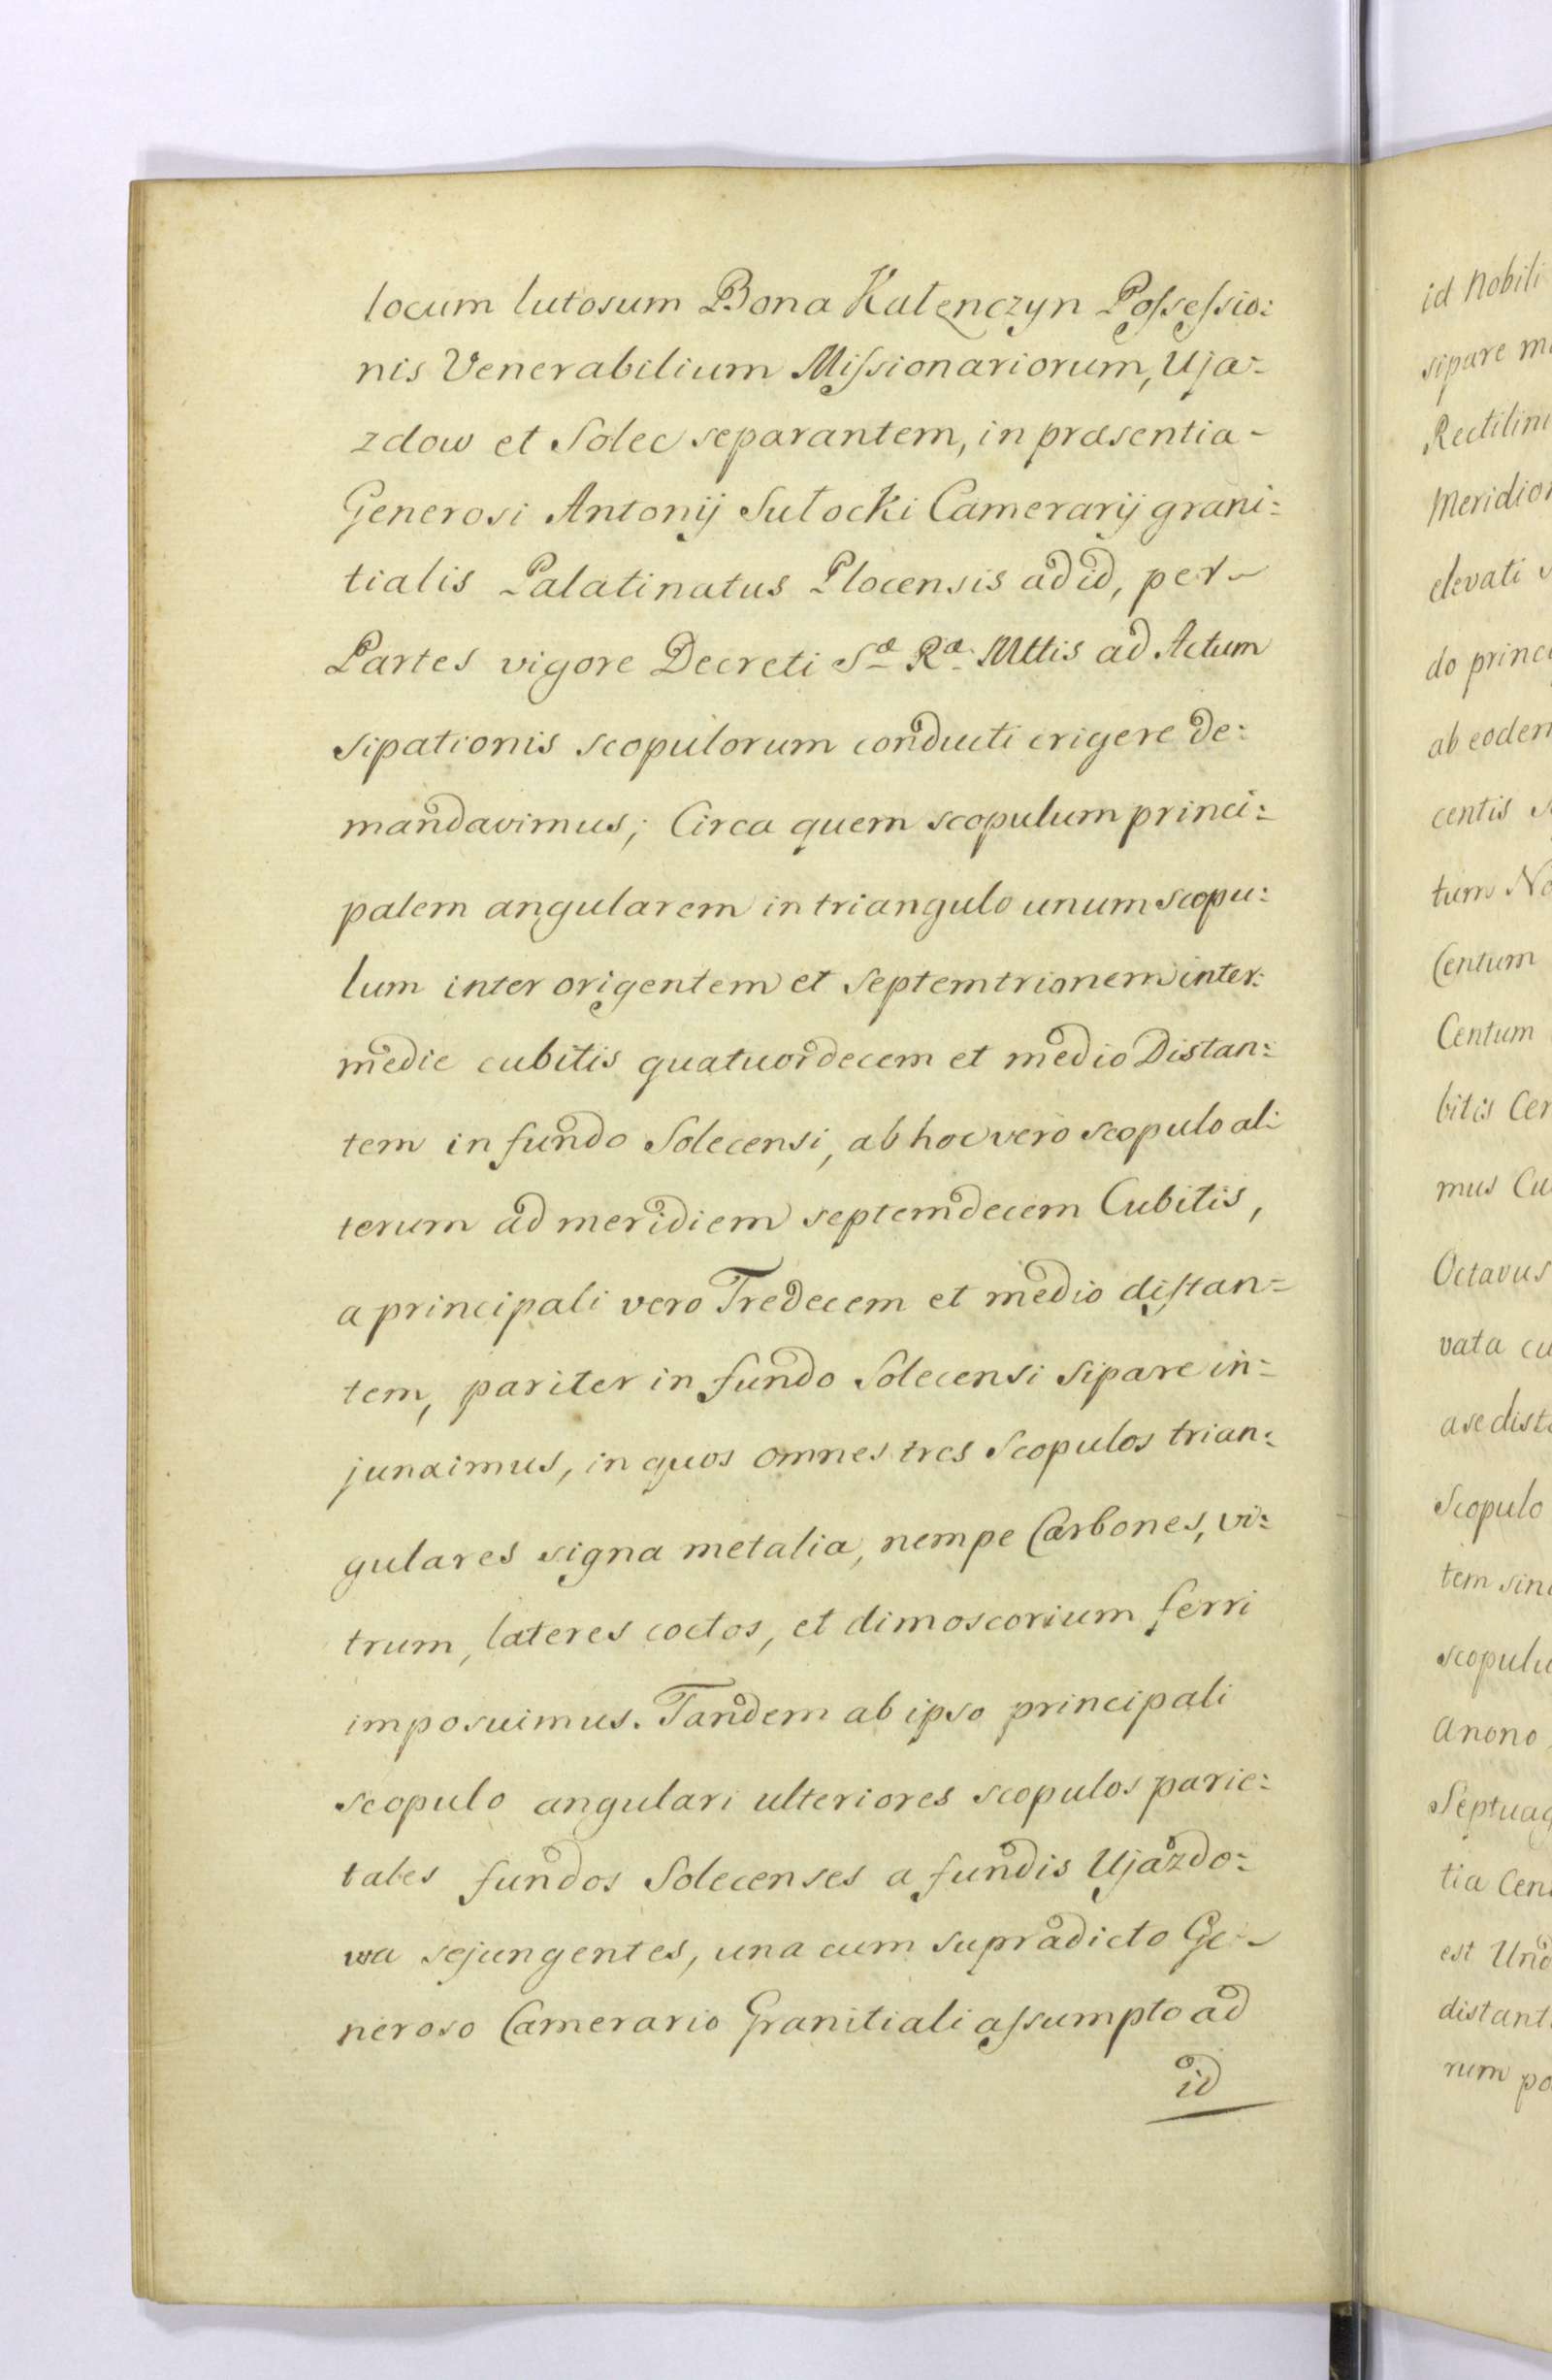 locum lutosum Bona Kałęnczyn Possessio:
nis Venerabilium Missionariorum, Uja-
zdow et Solec separantem, in præsentia -
Generosi Antonij Sułocki Camerarij grani:
tialis Palatinatus Plocensis ad id, per
Partes vigore Decreti Sæ Ræ Mttis ad Actum
sipationis scopulorum conducti erigere de:
mandavimus; Circa quem scopulum princi:
palem angularem in triangulo unum scopu:
lum inter origentem et Septemtrionem inter:
medie cubitis quatuordecem et medio Distan:
tem in fundo Solecensi, ab hoc vero scopulo al:
terum ad meridiem septemdecem Cubitis,
a principali vero Tredecem et medio distan=
tem, pariter in fundo Solecensi sipare in=
junximus, in quos omnes tres Scopulos trian:
gulares signa metalia, nempe Carbones, vi:
trum, lateres coctos, et dimoscorium ferri
imposuimus. Tandem ab ipso principali
scopulo angulari ulteriores scopulos parie:
tales fundos Solecenses a fundis Ujazdo:
wa sejungentes, una cum supradicto Ge-
neroso Camerario Granitiali assumpto ad
id
id Nobili
sipare m
Rectilin
Meridio
elevati
do princ
ab eodem
centis
tum No
Centum
Centum
bitis Cen
mus Cu
Octavus
vata cu
a se dist
Scopulo
tem sin
scopulu
a nono
Septuag
tia Cen
est Und
distant
rum po